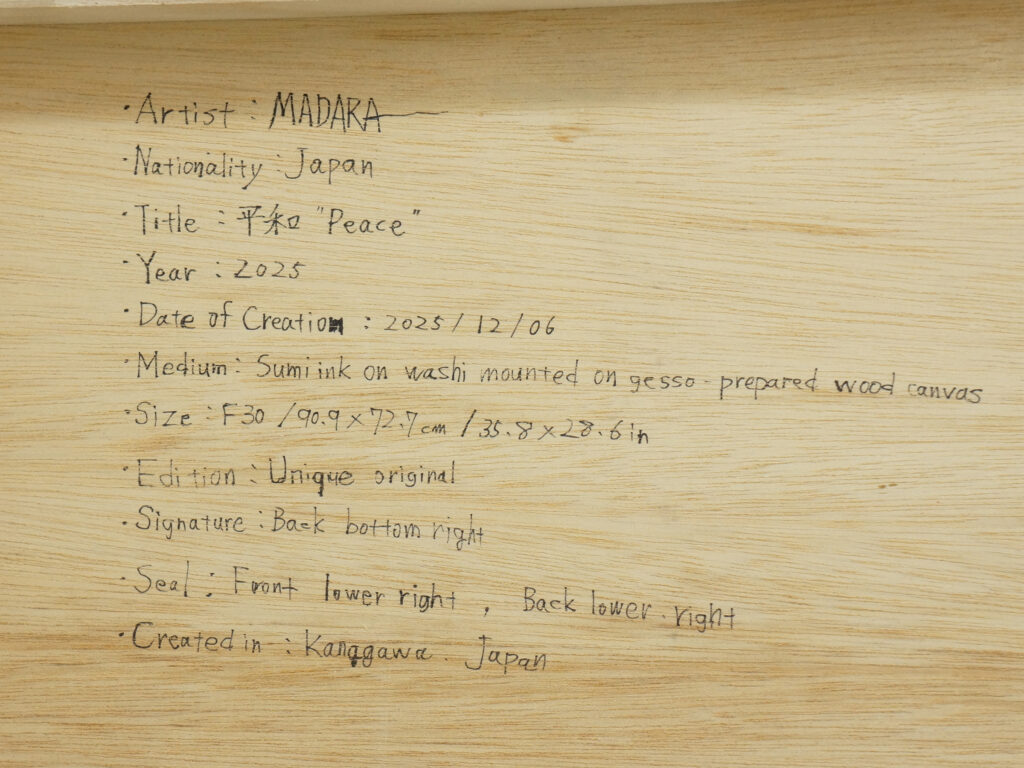 ・Artist : MADARA
・Nationality : Japan
・Title : 平和 "Peace"
・Year : 2025
・Date of Creation : 2025/12/06
・Medium : Sumi ink on washi mounted on gesso-prepared wood canvas
・Size : F30 /90.9×72.7cm /35.8×28.6in
・Edition : Unique original
・Signature : Back bottom right
・Seal : Front lower right , Back lower right
・Created in : Kanagawa. Japan